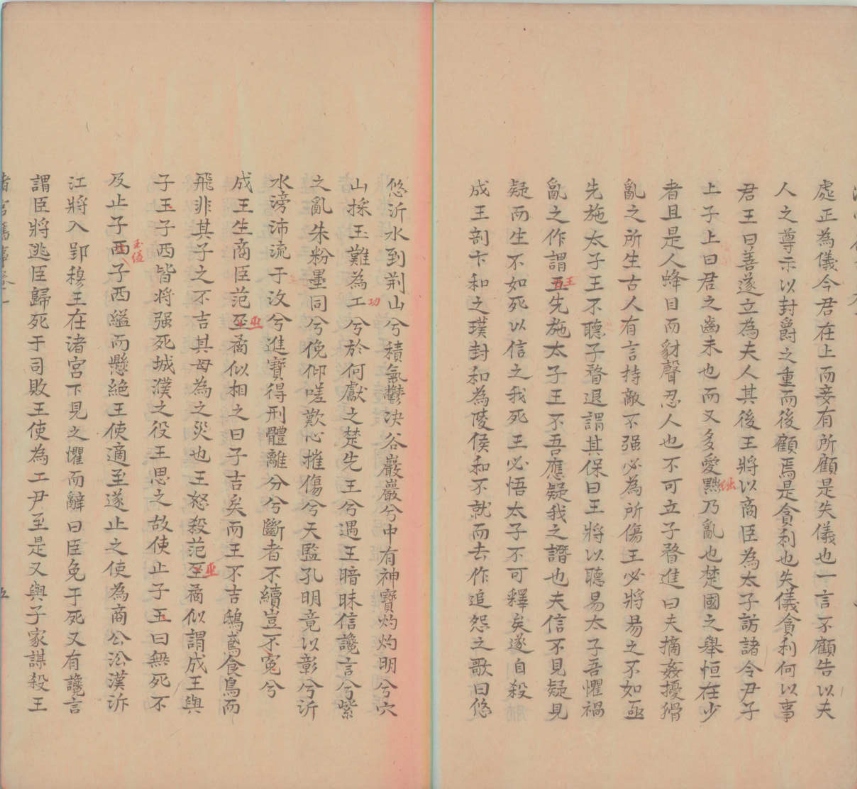 處正為儀今君在上而妾有所顧是失儀也一言不顧告以夫
人之尊示以封爵之重而後顧焉是貪利也失儀貪利何以事
君王曰善遂立為夫人其後王將以商臣為太子訪諸令尹子
上子上曰君之齒未也而又多愛黜乃亂也楚國之舉恒在少
者且是人蜂目而豺聲忍人也不可立子瞀進曰夫摘姦擾猾
亂之所生古人有言持敵不强必為所傷王必將易之不如亟
先施太子王不聽子瞀退謂其保曰王將以聽易太子吾懼禍
亂之作謂王先施太子王不吾應疑我之譖也夫信不見疑見
疑而生不如死以信之我死王必悟太子不可釋矣遂自殺
成王剖卞和之璞封和為陵侯和不就而去作追怨之歌曰悠
悠沂水到荆山兮積氣鬱泱谷巖巖兮中有神寶灼灼明兮穴
山採玉難為工功兮於何獻之楚先王兮遇王暗昧信讒言兮紫
之亂朱粉墨同兮俛仰嗟歎心摧傷兮天監孔明竟以彰兮沂
水滂沛流于汶兮進寶得刑體離分兮斷者不續豈不寃兮
成王生商臣范至巫矞似相之曰子吉矣而王不吉鴟鳶食鳥而
飛非其子之不吉其母為之災也王怒殺范至巫矞似謂成王與
子玉子西皆將强死城濮之役王思之故使止子玉曰無死不
及止子西子西縊而懸絶王使適至遂止之使為商公沿漢泝
江將入郢穆王在渚宮下見之懼而辭曰臣免于死又有讒言
謂臣將逃臣歸死于司敗王使為工尹至是又與子家謀殺王
五